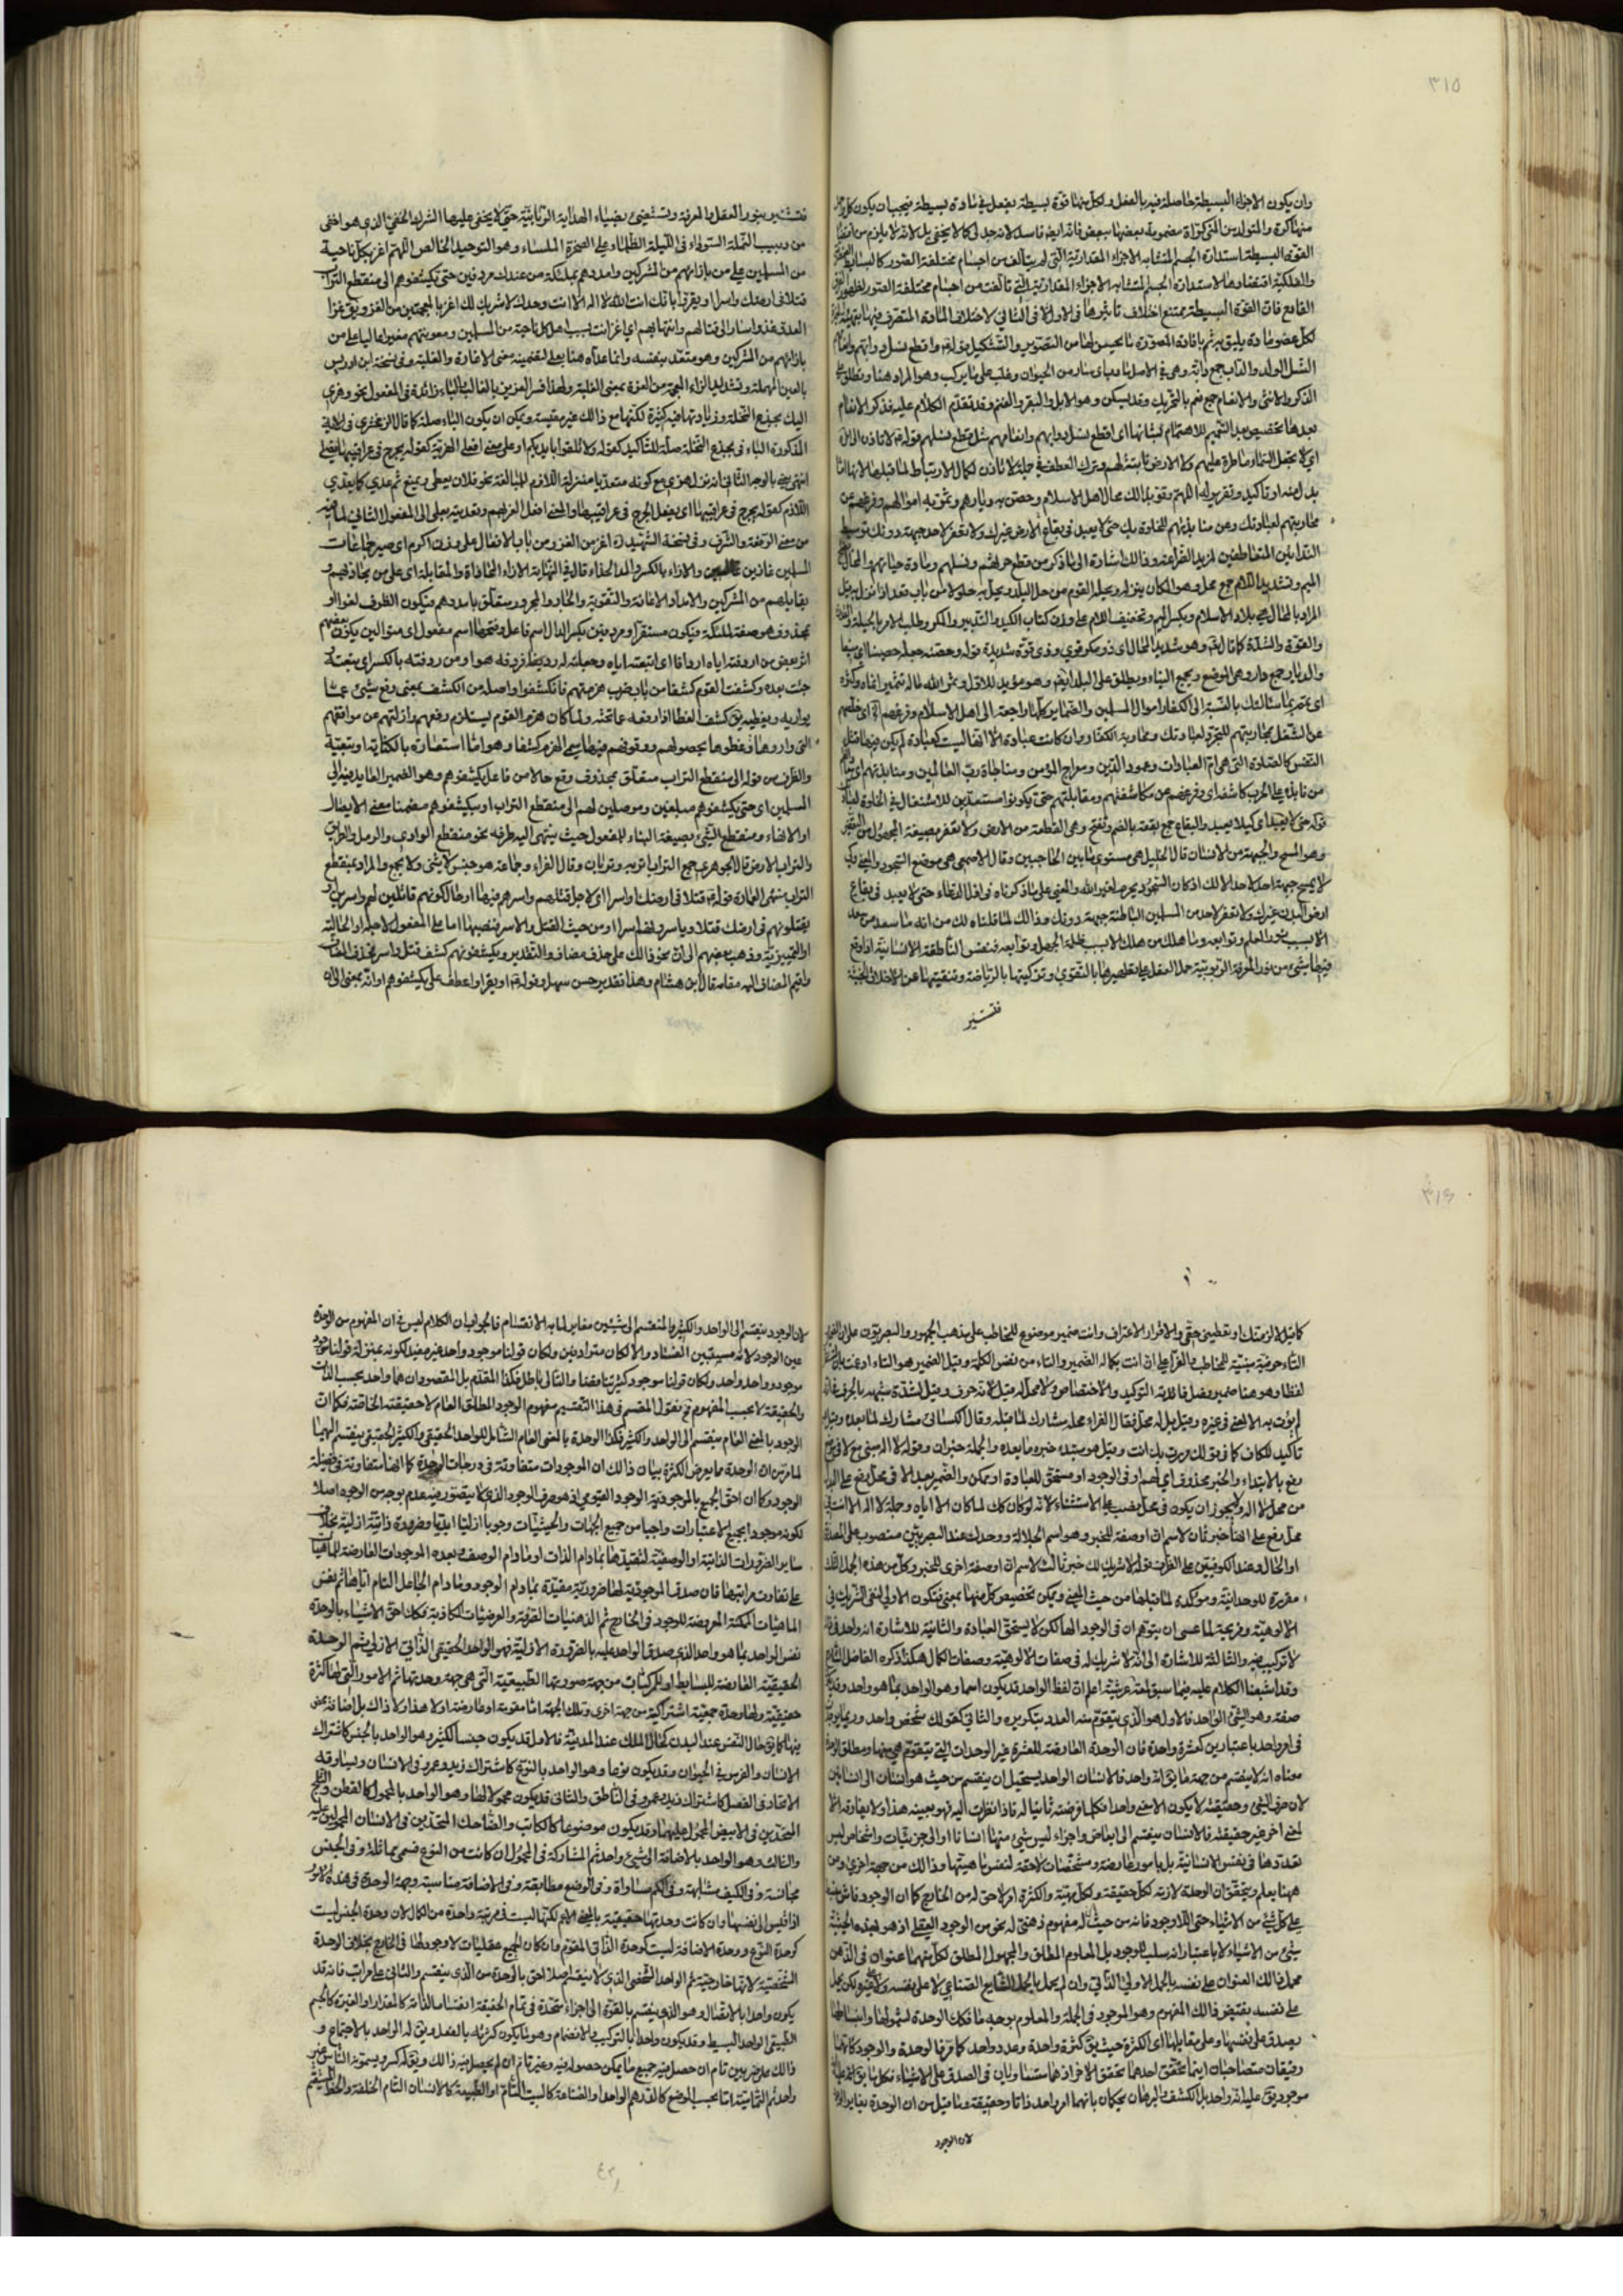 ٣١٥
وان يكون الاجزاء البسيطة حاصلة فيه بالفعل ولكل منها قوة بسيطة يفعل في مادة بسيطة فيجب ان يكون كل
القوة البسيطة استدارة الجسم المتشابه الاجزاء المقدارية التي لم يتألف من اجسام مختلفة الصور كالبسائط
والفلكية اقتضاءها لاستدارة الجسم المتشابه الاجزاء المقدارية التي تألفت من اجسام مختلفة الصور
القامع فان القوة البسيطة يمتنع اختلاف تأثيرها في الاول لا في الثاني لاختلاف المادة المتصرف فيها
لكل عضو مادة يليق به ثم بافادة المصورة ما يحسن لها من التصوير والتشكيل قوله واقطع نسل دوابهم وانعامهم
النسل الولد والدواب جمع دابة وهي في الاصل ما دب اي سار من الحيوان وغلب على ما يركب وهو المراد هنا ويطلق على
الذكر والانثى والانعام جمع نعم بالتحريك وقد يسكن وهو الابل والبقر والغنم وقد تقدم الكلام عليه فذكر الانعام
بعدها تخصيص بعد التعميم للاهتمام بشأنها اي اقطع نسل دوابهم وانعامهم مثل قطع نسلهم قوله لا تاذن
اي لا تجعل السماء ماطرة عليهم ولا الارض نابتة لهم وترك العطف في جملة لا تاذن لكمال الارتباط لما قبلها لانها اما
بدل منه او تاكيد وتقرير له اللهم وقو بذلك محال اهل الاسلام وحصن به ديارهم وثمر به اموالهم وفرغهم عن
محاربتهم لعبادتك وعن منابذتهم للخلوة بك حتى لا يعبد في بقاع الارض غيرك ولا تعفر لاحد جبهة دونك توسيط
الميم وتشديد اللام جمع محل وهو المكان ينزله ويحله القوم من حل البلد ويحل به حلولا من باب قعد اذا نزل به
المراد بالمحال هي بلاد الاسلام وبكسر الميم وتخفيف اللام على وزن كتاب الكيد والتدبير والمكر وطلب الامر بالحيلة
والقوة والشدة كما قال تعالى وهو شديد المحال اي ذو مكر قوي وذو قوة شديدة قوله وحصنه جعله حصينا اي منيعا
والديار جمع دار وهي الموضع ويجمع البناء ويطلق على البلد ايضا وهو مؤيد للاول وثمر الله ماله تثميرا نماه وكثره
عن الشغل بمحاربتهم للتجرد لعبادتك ومحاربة الكفار وان كانت عبادة الا انها ليست كعبادة لم يكن فيها
النفس كالصلوة التي هي ام العبادات وعمود الدين ومعراج المؤمن ومناجاة رب العالمين ومنابذتهم اي
من نابذه على الحرب كاشفه اي وفرغهم عن مكاشفتهم ومقابلتهم حتى يكونوا مستعدين للاشتغال في الخلوة
قوله حتى لا يعبد اي كيلا يعبد والبقاع جمع بقعة بالضم وتفتح وهي القطعة من الارض ولا تعفر بصيغة المجهول من التعفير
وهو المسح والجبهة من الانسان قال الخليل هي مستوى ما بين الحاجبين وقال الاصمعي هي موضع السجود
ارض البدن غيرك ولا تعفر لاحد من المسلمين الباطنة جبهة دونك وذلك لما قلناه لك من انه ما سعد من
الا بسبب نور العلم وتوابعه وما هلك من هلك الا بسبب ظلمة الجهل وتوابعه فنفس الناطقة الانسانية
فيها شيء من نور المعرفة الربوبية حل العقل على تطهيرها بالتقوى وتزكيتها بالرياضة وتنقيتها عن الاخلاق
فتستنير
فتستنير بنور العقل والمعرفة وتستضيئ بضياء الهداية الربانية حتى لا يخفى عليها الشرك الخفي الذي هو اخفى
من دبيب النملة السوداء في الليلة الظلماء على الصخرة الملساء وهو التوحيد الخالص اللهم اغز بكل ناحية
من المسلمين على من بازائهم من المشركين وامددهم بملئكة من عندك مردفين حتى يكشفوهم الى منقطع التراب
قتلا في ارضك واسرا او يقروا بانك انت الله لا اله الا انت وحدك لا شريك لك اغز بالمعجمتين من الغزو
العدو غزوا سار الى قتالهم وانتهابهم اي اغز انت بسبب اهل كل ناحية من المسلمين ومعونتهم مغيرا على من
بازائهم من المشركين وهو متعد بنفسه وانما عداه هنا بعلى لتضمينه معنى الاغارة والغلبة وفي نسخة ابن ادريس
بالعين المهملة وتشديد الزاء المعجمة من العزة بمعنى الغلبة ولهذا فسر العزيز بالغالب الباء زائدة في المفعول نحو وهزي
اليك بجذع النخلة وزيادتها فيه كثيرة لكنها مع ذلك غير مقيسة ويمكن ان يكون الباء صلة كما قال الزمخشري في الاية
المذكورة الباء في بجذع النخلة صلة للتاكيد كقوله ولا تلقوا بايديكم او على معنى افعلي الهز به كقوله يجرح في عراقيبها نصلي
انتهى يعني بالوجه الثاني انه نزل هزي مع كونه متعديا منزلة اللازم للمبالغة نحو فلان يعطي ويمنع ثم عدي كما يعدى
اللازم كقوله يجرح في عراقيبها اي يفعل الجرح في عراقيبها والمعنى افعل العز بهم وتعديته بعلى الى المفعول الثاني لما فيه
من معنى الرفعة والشرف وفي نسخة الشهيد اغز من الغزو من باب الافعال على وزن اكرم اي صير جماعات
المسلمين غازين والازاء بالكسر والمد الحذاء قال في النهاية الازاء المحاذاة والمقابلة اي على من يحاذيهم و
يقابلهم من المشركين والامداد الاعانة والتقوية والجار والمجرور متعلق بامددهم فيكون الظرف لغوا او
بمحذوف هو صفة لملئكة فيكون مستقرا ومردفين بكسر الدال اسم فاعل وفتحها اسم مفعول اي متوالين يكون بعضهم
اثر بعض من اردفته اياه اردافا اي اتبعته اياه وجعلته له رديفا فردفه هو او من ردفته بالكسر اي تبعته و
جئت بعده وكشفت القوم كشفا من باب ضرب هزمتهم فانكشفوا واصله من الكشف بمعنى رفع شيئ عما
يواريه ويغطيه يق كشف الغطا اذا رفعه عما تحته ولما كان هزم القوم يستلزم رفعهم وازالتهم عن مواقفهم
التي واروها وغطوها بحصولهم ووقوفهم فيها سمي الهزم كشفا وهو اما استعارة بالكناية او تبعية
والظرف من قوله الى منقطع التراب متعلق بمحذوف وقع حالا من فاعل يكشفوهم وهو الضمير العايد منه الى
المسلمين اي حتى يكشفوهم مبلغين وموصلين لهم الى منقطع التراب او بيكشفوهم مضمنا معنى الايصال
او الافضاء ومنقطع الشيئ بصيغة البناء للمفعول حيث ينتهي اليه طرفه نحو منقطع الوادي والرمل والطريق
والتراب الارض قال الجوهري جمع التراب اتربة وتربان وقال الفراء وجماعة هو جنس لا يثنى ولا يجمع والمراد بمنقطع
التراب منتهى العمارة قوله قتلا في ارضك واسرا اي لاجل قتلهم واسرهم فيها او حالكونهم قاتلين لهم واسرين او
يقتلونهم في ارضك قتلا وياسرونهم اسرا او من حيث القتل والاسر فنصبهما اما على المفعول لاجله او الحالية
او التمييزية وذهب بعضهم الى ان نحو ذلك على حذف مضاف والتقدير ويكشفونهم كشف قتل واسر فحذف المضاف
واقيم المضاف اليه مقامه قال ابن هشام وهذا تقدير حسن سهل وقوله او يقروا عطف على يكشفوهم او انه بمعنى الى ان
٣١٦
كما قيل لالزمنك او تقضيني حقي والاقرار الاعتراف وانت ضمير موضوع للمخاطب على مذهب الجمهور والبصريون على ان
التاء حرفية مبنية للمخاطب والفراء على ان انت بكماله الضمير والتاء من نفس الكلمة وقيل الضمير هو التاء
لفظا وهو هنا ضمير فصل فائدته التوكيد والاختصاص ولا محل له قيل لانه حرف وقيل لشدة شبهه بالحرف
لم يؤت به الا لمعنى في غيره وقيل بل له محل فقال الفراء محله مشارك لما قبله وقال الكسائي مشارك لما بعده وقيل
تأكيد للكاف كما في قولك مررت بك انت وقيل هو مبتدء خبره ما بعده والجملة خبر ان وقوله لا اله مبني مع لا في
رفع بالابتداء والخبر محذوف اي لهم او في الوجود او مستحق للعبادة او ممكن والضمير بعد الا في محل رفع على البدل
من محل لا اله ولا يجوز ان يكون في محل نصب على الاستثناء لانه لو كان كك لما كان الا اياه وجملة لا اله الا انت في
محل رفع على انها خبر ثان لاسم ان او صفة للخبر وهو اسم الجلالة ووحدك عند البصريين منصوب على المصدر
او الحال وعند الكوفيين على الظرف قوله لا شريك لك خبر ثالث لاسم ان او صفة اخرى للخبر وكل من هذه الجمل الثلث
مقررة للوحدانية وموكدة لما قبلها من حيث المعنى ويمكن تخصيص كل منها بمعنى فتكون الاولى لنفي الشريك في
الالوهية ومزيحة لما عسى ان يتوهم ان في الوجود الها لكن لا يستحق العبادة والثانية للاشارة انه واحد في ذاته
لا تركيب فيه والثالثة للاشارة الى انه لا شريك له في صفات الالوهية وصفات الكمال هكذا ذكره الفاضل الشارح
وقد اشبعنا الكلام عليه فيما سبق لمعة عرشية اعلم ان لفظ الواحد قد يكون اسما وهو الواحد بما هو واحد وقد يكون
صفة وهو الشيئ الواحد فالاول هو الذي يتقوم منه العدد بتكريره والثاني كقولك شخص واحد وربما
في امر واحد باعتبارين كعشرة واحدة فان الوحدة العارضة للعشرة غير الوحدات التي يتقوم هي منها ومطلق
معناه انه لا ينقسم من جهة ما يق انه واحد فالانسان الواحد يستحيل ان ينقسم من حيث هو انسان الى انسانين
لان صرف الشيئ وحقيقته لا يكون الا معنى واحدا فكلما فرضته ثانيا له فاذا نظرت اليه فهو بعينه هذا ولا يفارقه الا
لمعنى اخر غير حقيقته فالانسان ينقسم الى ابعاض واجزاء ليس شيئ منها انسانا او الى جزئيات واشخاص ليس
تعددها في نفس الانسانية بل بامور عارضة ومشخصات لاحقة لنفس ماهيتها وذلك من جهة اخرى ومن
ههنا يعلم ويتحقق ان الوحدة لازمة لكل حقيقة ولكل مهية والكثرة امر لاحق له من الخارج كما ان الوجود
على كل شيئ من الاشياء حتى اللاوجود فانه من حيث له مفهوم ذهني له نحو من الوجود العقلي اذ هو لهذه الحيثية
شيئ من الاشياء لا باعتبار انه سلب للوجود بل المعلوم المطلق والمجهول المطلق لكل منهما عنوان في الذهن
على نفسه بنقيض ذلك المفهوم وهو الموجود في الجملة والمعلوم بوجه ما فكك الوحدة لشمولها وانبساطها
يصدق على نفسها وعلى مقابلها اي الكثرة حيث يق كثرة واحدة وعدد واحد كما مر فالوحدة والوجود كانهما
رفيقان متصاحبان اينما تحقق احدهما تحقق الاخر اذ هما متساويان في الصدق على الاشياء فكل ما يق انه
موجود يق عليه انه واحد بل الكشف والبرهان يحكمان بانهما امر واحد ذاتا وحقيقة وما قيل من ان الوحدة يغاير الوجود
لان الوجود
لان الوجود ينقسم الى الواحد والكثير والمنقسم الى شيئين مغاير لما به الانقسام فالجواب ان الكلام ليس في ان المفهوم من الوحدة
عين الوجود لانه مستبين الفساد والا لكان مترادفين ولكان قولنا موجود واحد غير مفيد لكونه بمنزلة قولنا موجود
موجود وواحد واحد ولكان قولنا موجود كثير تناقضا والتالي باطل فكذا المقدم بل المقصود ان هما واحد بحسب الذات
والحقيقة لا بحسب المفهوم ثم نقول المقسم في هذا التقسيم مفهوم الوجود المطلق العام لا حقيقته الخاصة فكما ان
الوجود بالمعنى العام ينقسم الى الواحد والكثير فكذا الوحدة بالمعنى العام الشامل للواحد الحقيقي والكثير الحقيقي ينقسم اليهما
لما مر من ان الوحدة مما يعرض الكثرة بيان ذلك ان الموجودات متفاوتة في درجات الوحدة كما انها متفاوتة في فضيلة
الوجود وكما ان احق الجميع بالموجودية الوجود القيومي اذ هو صرف الوجود الذي لا يتصور فيه عدم بوجه من الوجوه اصلا
لكونه موجودا بجميع الاعتبارات واجبا من جميع الجهات والحيثيات وجوبا ازليا ابديا وضرورة ذاتية ازلية بخلاف
سائر الضرورات الذاتية او الوصفية لتقيدها بمادام الذات او مادام الوصف وبعده الموجودات العارضة للماهيات
على تفاوت مراتبها فان صدق الموجودية لها ضرورية مقيدة بمادام الوجود ومادام الجاعل التام اياها ثم نفس
الماهيات الممكنة المعروضة للوجود في الخارج ثم الذهنيات الفرضية والعرضيات الكاذبة فكك احق الاشياء بالوحدة
نفس الواحد بما هو واحد الذي صدق الواحد عليه بالضرورة الازلية فهو الواحد الحقيقي الذاتي الازلي ثم الوحدة
الحقيقية العارضة للبسايط او المركبات من جهة صورتها الطبيعية التي هي جهة وحدتها ثم الامور التي لها كثرة
حقيقية ولها وحدة جمعية اشتراكية من جهة اخرى وتلك الجهة اما مقومة او عارضة او لا هذا ولا ذاك بل اضافة محض
بينها كما يق حال النفس عند البدن كحال الملك عند المدينة فالاول قد يكون جنسا لكثير وهو الواحد بالجنس كاشتراك
الانسان والفرس في الحيوان وقد يكون نوعا وهو الواحد بالنوع كاشتراك زيد وعمرو في الانسان ويساوقه
الاتحاد في الفصل كاشتراك زيد وعمرو في الناطق والثاني قد يكون محمولا لها وهو الواحد بالمحمول كالقطن والثلج
المتحدين في الابيض المحمول عليهما وقد يكون موضوعا كالكاتب والضاحك المتحدين في الانسان المحمولين عليه
والثالث وهو الواحد بالاضافة الى شيئ واحد ثم المشاركة في المحمول ان كانت من النوع فسمي مماثلة وفي الجنس
مجانسة وفي الكيف مشابهة وفي الكم مساواة وفي الوضع مطابقة وفي الاضافة مناسبة وجهة الوحدة في هذه الامور
اذا قيس الى نفسها وان كانت وحدتها حقيقية بالمعنى الاعم لكنها ليست في مرتبة واحدة من الكمال لان وحدة الجنس ليست
كوحدة النوع ووحدة الاضافة ليست كوحدة الذاتي المقوم وان كان الجميع عقليات لا وجود لها في الخارج بخلاف الوحدة
الشخصية لانها خارجية ثم الواحد الشخصي الذي لا ينقسم اصلا احق بالوحدة من الذي ينقسم والثاني على مراتب فانه قد
يكون واحدا بالاتصال وهو الذي ينقسم بالقوة الى اجزاء متحدة في تمام الحقيقة انقساما لذاته كالمقدار او لغيره كالجسم
الطبيعي الواحد البسيط وقد يكون واحدا بالتركيب والانضمام وهو ما يكون كثرته بالفعل ويق له الواحد بالاجتماع و
ذلك على ضربين تام ان حصل فيه جميع ما يمكن حصوله فيه وغير تام ان لم يحصل فيه ذلك ويق له كسر ويسمونه الناس غير
واحد ثم التمامية اما بحسب الوضع كالدرهم الواحد او الصناعة كالبيت التام او الطبيعة كالانسان التام الخلقة والخط المستقيم